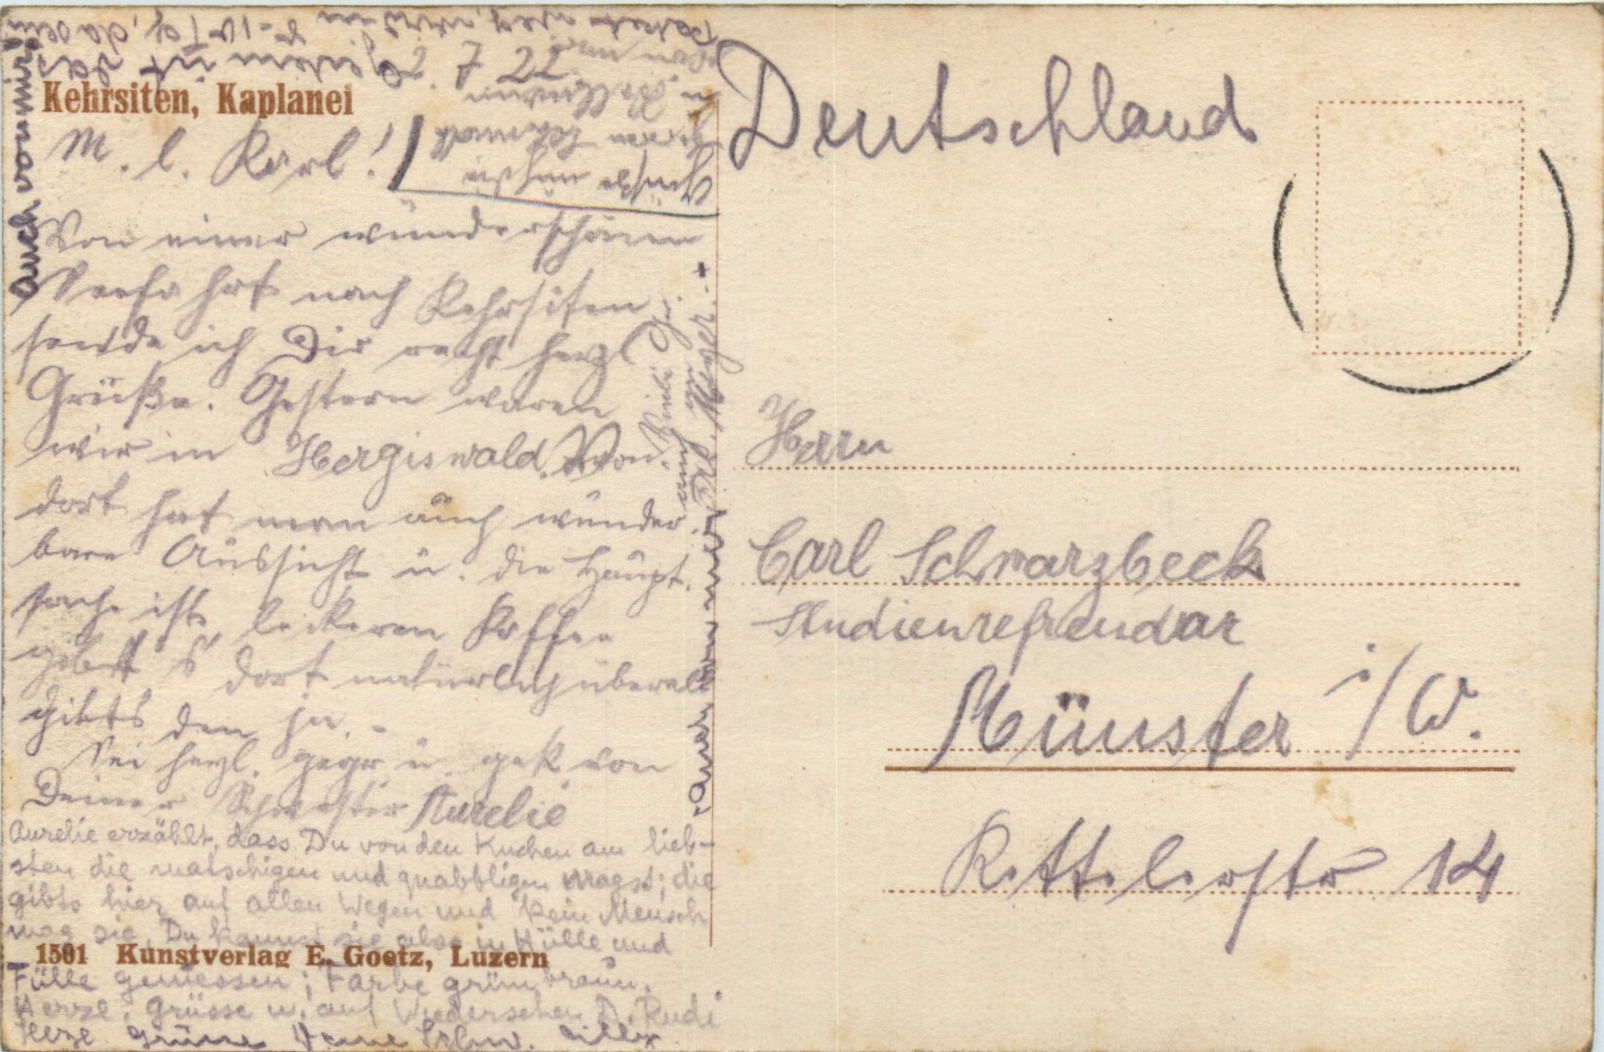 Kehrsiten, Kaplanei
2. 7. 22.
M. l. Karl!
Von einer wunderschönen
Seefahrt nach Kehrsiten
sende ich Dir recht herzl
Grüße. Gestern waren
wir in Hergiswald. Von
dort hat man auch wunder
bare Aussicht u. die Haupt
sache ist leckeren Kaffee
gibt s dort natürlich überall
gibts den ja. -
Sei herzl. gegr. u. gek. von
Deiner Schwester Aurelie
Aurelie erzählt, dass Du von den Kuchen am lieb-
sten die matschigen und quabbligen magst; die
gibts hier auf allen Wegen und kein Mensch
mag sie. Du kannst sie also in Hülle und
Fülle geniessen; Farbe grün braun.
Herzl. Grüsse u. auf Wiedersehen D. Rudi
Herzl Grüsse Deine Schw.
1501 Kunstverlag E. Goetz, Luzern
auch von mir
auch von mir Frl. Meyer.
Deutschland
Herrn
Carl Schwarzbeck
Studienreferendar
Münster i/W.
14